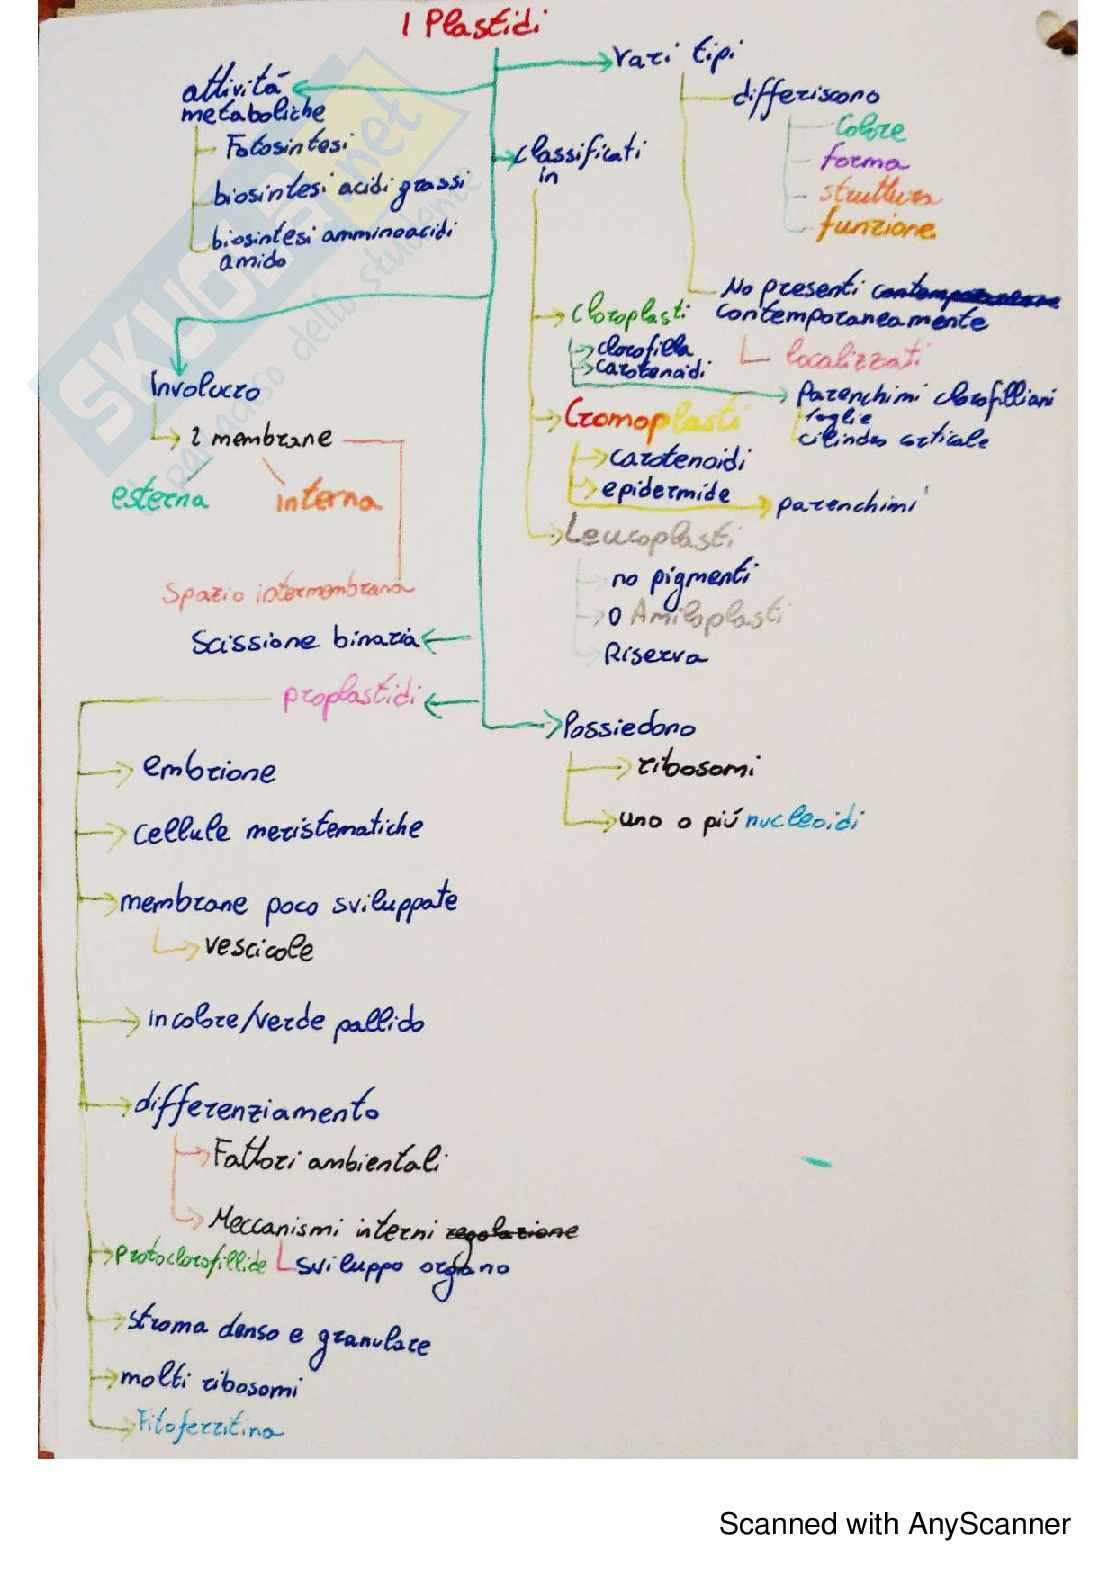 I Plastidi
attività
metaboliche
Fotosintesi
biosintesi acidi grassi
biosintesi amminoacidi
amido
Vari tipi
differiscono
Colore
forma
struttura
funzione
No presenti contemporanea
contemporaneamente
localizzati
Classificati
in
Cloroplasti
clorofilla
carotenoidi
Parenchimi clorofilliani
foglie
cilindro corticale
Cromoplasti
carotenoidi
epidermide
parenchimi
Leucoplasti
no pigmenti
o Amiloplasti
Riserva
Involucro
2 membrane
esterna
interna
Spazio intermembrana
Scissione binaria
proplastidi
embrione
cellule meristematiche
membrane poco sviluppate
vescicole
incolore/verde pallido
differenziamento
Fattori ambientali
Meccanismi interni regolazione
sviluppo organo
protoclorofillide
stroma denso e granulare
molti ribosomi
Fitoferritina
Possiedono
ribosomi
uno o più nucleoidi
SKUOLA.net
il paradiso dello studente
Scanned with AnyScanner